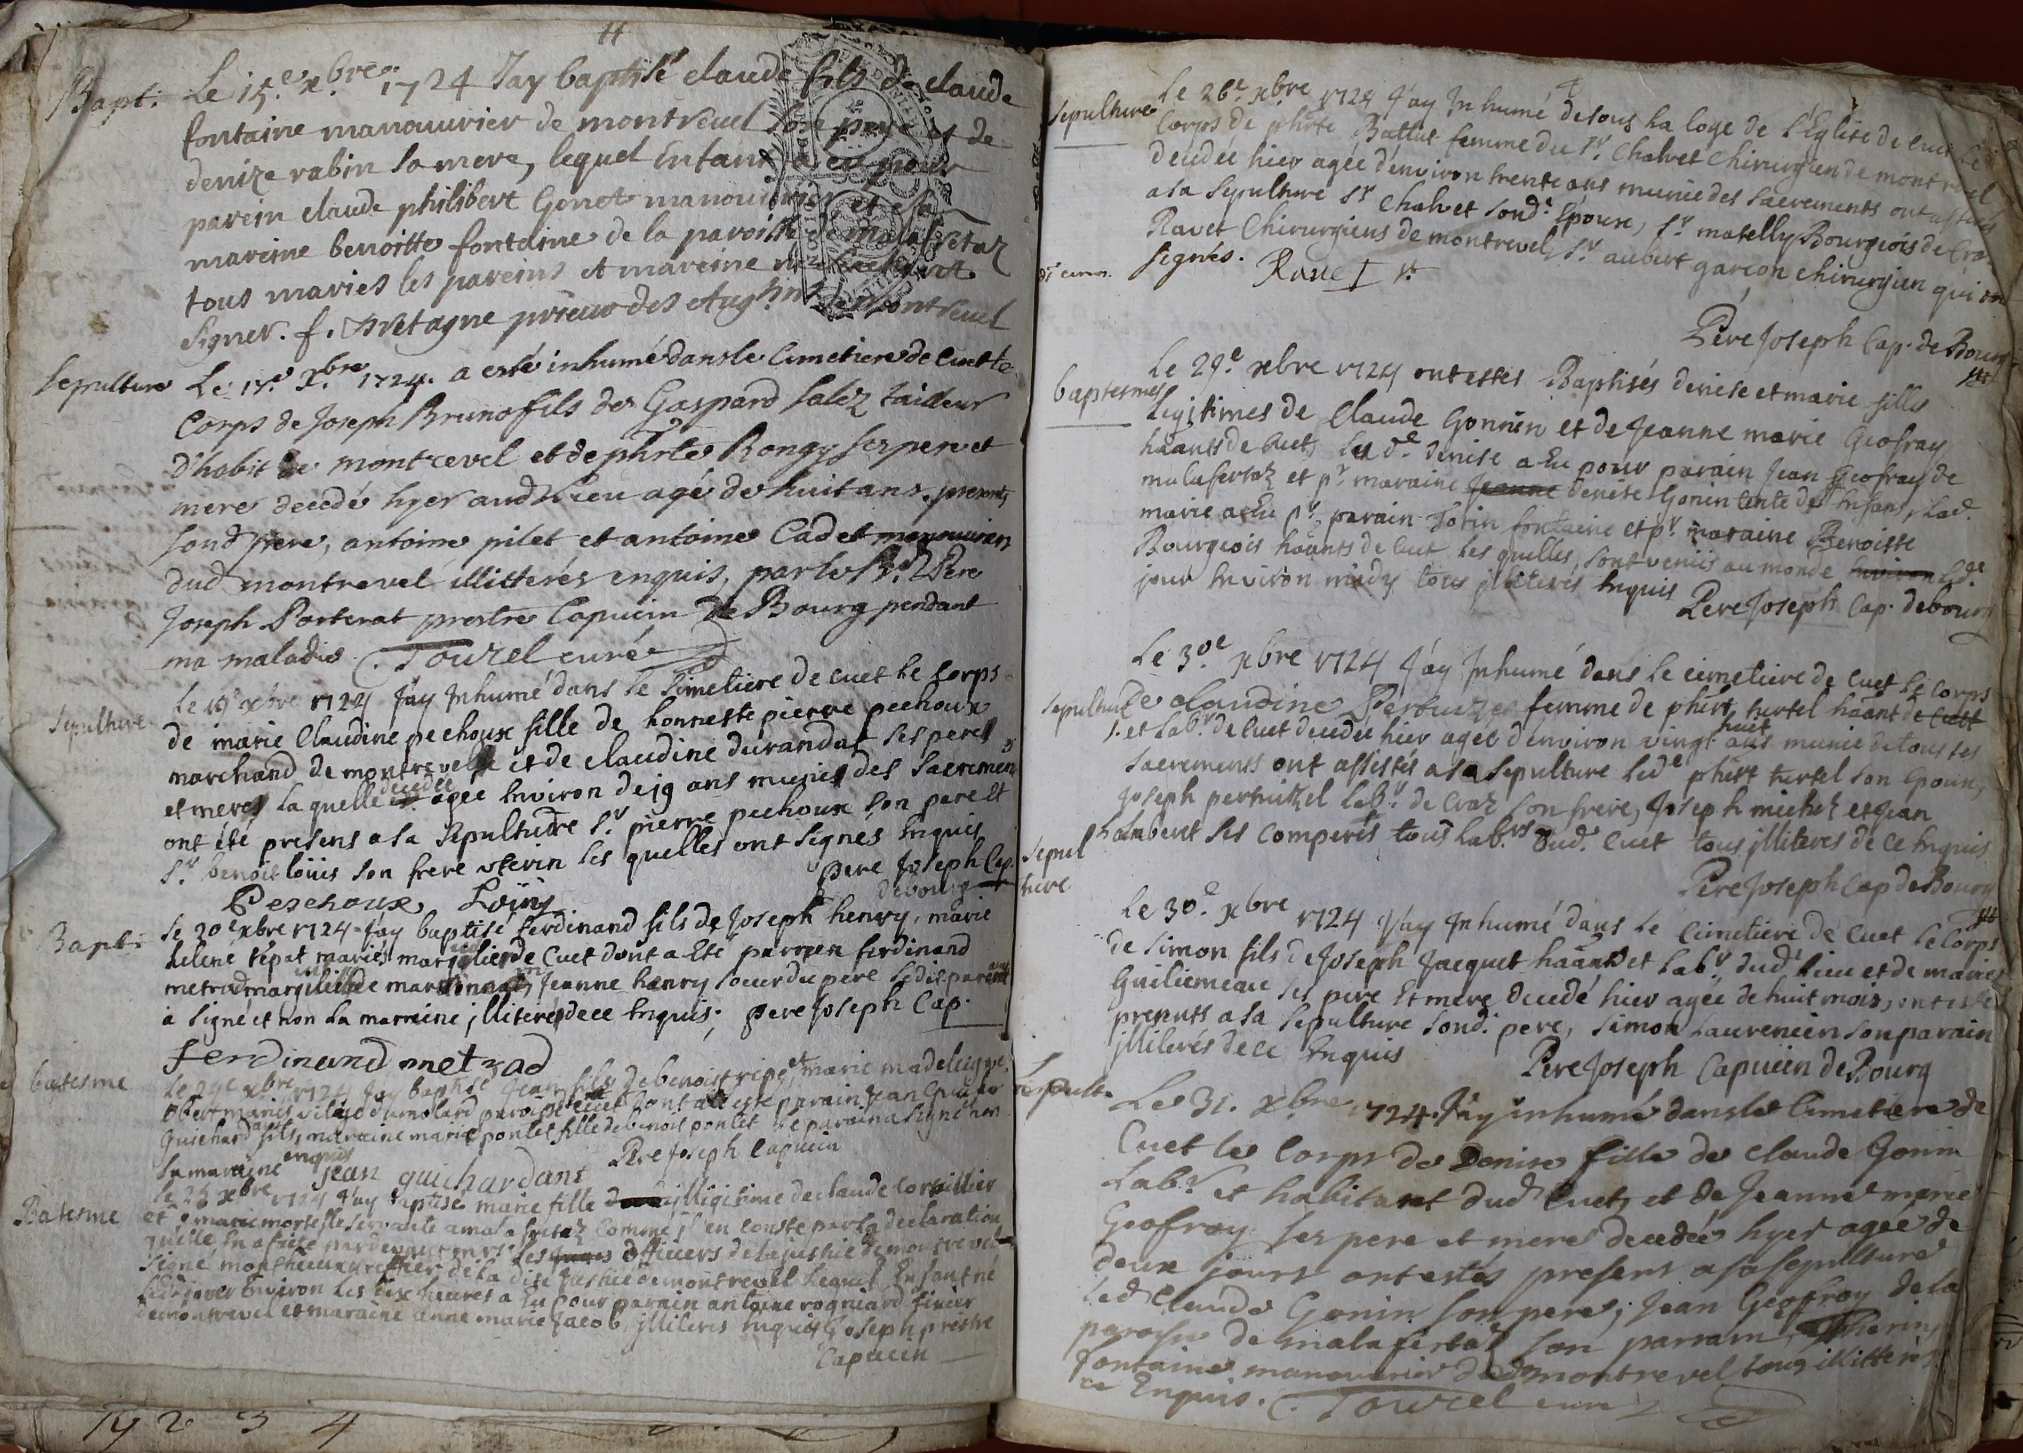 Bapt. Le 15.e xbre 1724 Jay baptisé claude fils de claude
fontaine manouvrier de montrevel son pere et de
denize rabin sa mere, lequel Enfant a eu pour
parein claude philibert Gonet manouvrier et
mareine benoitte fontaine de la paroisse de malafretaz
tous mariés les pareins et mareine
signer. f. Bretagne prieur des Augtins de montrevel
sepulture Le 17.e Xbre 1724. a esté inhumé dans le Cimetiere de Cuet le
Corps de Joseph Bruno fils de Gaspard Salez tailleur
D'habit de montrevel et de phrte Rongy ses pere et
mere decedé hyer aud. lieu agé de huit ans. presents
sond. pere, antoine pilet et antoine Cadet manouvriers
dud. montrevel illitterés enquis, par le R.d Pere
Joseph Porterat prestre Capucin de Bourg pendant
ma maladie. Tourel curé
sepulture Le 19e xbre 1724 j'ay Inhumé dans le Simetiere de Cuet le Corps
de marie Claudine pechoux fille de honneste pierre pechoux
marchand de montrevelle et de claudine durandat ses peres
et meres laquelle decedée agée Environ de 19 ans munies des Sacremens
ont été presens a sa sepulture s.r pierre pechoux son pere Et
s.r benoit loüis son frere vterin les quelles ont signés Enquis
pere Joseph Cap.
debourg
Peschoux Loüis
Bapt. le 20e xbre 1724 j'ay baptisé ferdinand fils de Joseph henry, marie
helene tépat mariés de Cuet dont a Eté parrien ferdinand
metrad Jeanne henry soeur du pere Ledis parent
a signé et non La marreine jlliterés de ce Enquis. pere Joseph Cap.
ferdinand metrad
batesme Le 21e xbre 1724 Jay baptisé Jean fils de benoist et marie madeleigne
obert mariés vilage du molard paroisse Cuet dont a esté parain Jean Guichar
Guichard mareine marie ponlet fille de benois ponlet Le parain a Signé non
la maraine enquis jean guichardans Pere Joseph Capucin
Batesme le 23 xbre 1724 J'ay baptisé marie fille jlligitime de claude Corsillier
et marie mortelle servante a malafretaz Comme jl en conste par la declaration
quelle En a faite pardevant les officiers de la justice de montrevel
signé de la dite justice de montrevel lequel Enfant né
hyer Environ les dix heures a Eu pour parain antoine rogniard
de montrevel et maraine anne marie Jacob jlliteres Enquis Joseph prestre
Capucin
19 2 3 4
sepulture Le 26e xbre 1724 J'ay Inhumé desous la loge de l'Eglise de cuet le
Corps de phrte Battut femme du s.r Chalvet Chirurgien de montrevel
decedee hier agée d'environ trente ans munie des Sacrements ont assisté
a sa sepulture s.r Chalvet sond.e Epoux, s.r matelly Bourgeois de Cra
Ravet Chirurgiens de montrevel, s.r aubert garcon chirurgien qui on
signés. Ravet
Père Joseph Cap. de Bourg
baptesmes Le 29e xbre 1724 ont estés Baptisés denise et marie filles
Legitimes de Claude Gonnin et de Jeanne marie Geofray
haants de Cuet, la d.e denise a Eu pour parain Jean Geofray de
malafertaz et p.r maraine Jeanne denise Gonin tante des Enfans, Lad.
marie a Eu p.r parain fontaine et p.r maraine Benoitte
Bourgeois haants de Cuet les quelles, sont veniis au monde Environ Led.e
jour Environ midy tous jlliterés Enquis
Pere Joseph Cap. debourg
sepulture Le 30e xbre 1724 J'ay Inhumé dans Le cimetiere de cuet Le Corps
de claudine Pertuizet femme de phirt tertel haant de Cuet
et Lab.r de Cuet decedée hier agee d'environ vingt huit ans munie de tous les
sacrements ont assistés a sa sepulture led.e phirt tertel son Epoux,
Joseph pertuizel Lab.r de Craz son frere, Joseph michel et Jean
Lambert ses Comperes tous Lab.rs dud. Cuet tous jlliteres de ce Enquis
Pere Joseph Cap de Bourg
sepul
ture Le 30e xbre 1724 J'ay Inhumé dans Le Cimetiere de Cuet Le Corps
de simon fils de Joseph Jacquet haant et Lab.r dud. lieu et de marie
Guiliemeau ses pere Et mere decedé hier agée de huit mois, ont esté
presents a sa sepulture sond. pere, simon Laurencin son parain
jlliterés de ce Enquis Pere Joseph Capucin de Bourg
sepult. Le 31. xbre 1724. J'ay inhumé dans le Cimetiere de
Cuet le Corps de Denise fille de claude Gonin
Lab.r et habitant dud. Cuet, et de Jeanne marie
Geofray ses pere et mere decedée hyer agée de
deux jours ont estés presens a sa sepulture
led. Claude Gonin son pere, Jean Geofroy de la
paroisse de malafertaz son parrain,
fontaine manouvrier de montrevel tous illitterés
ce Enquis. Tourel curé